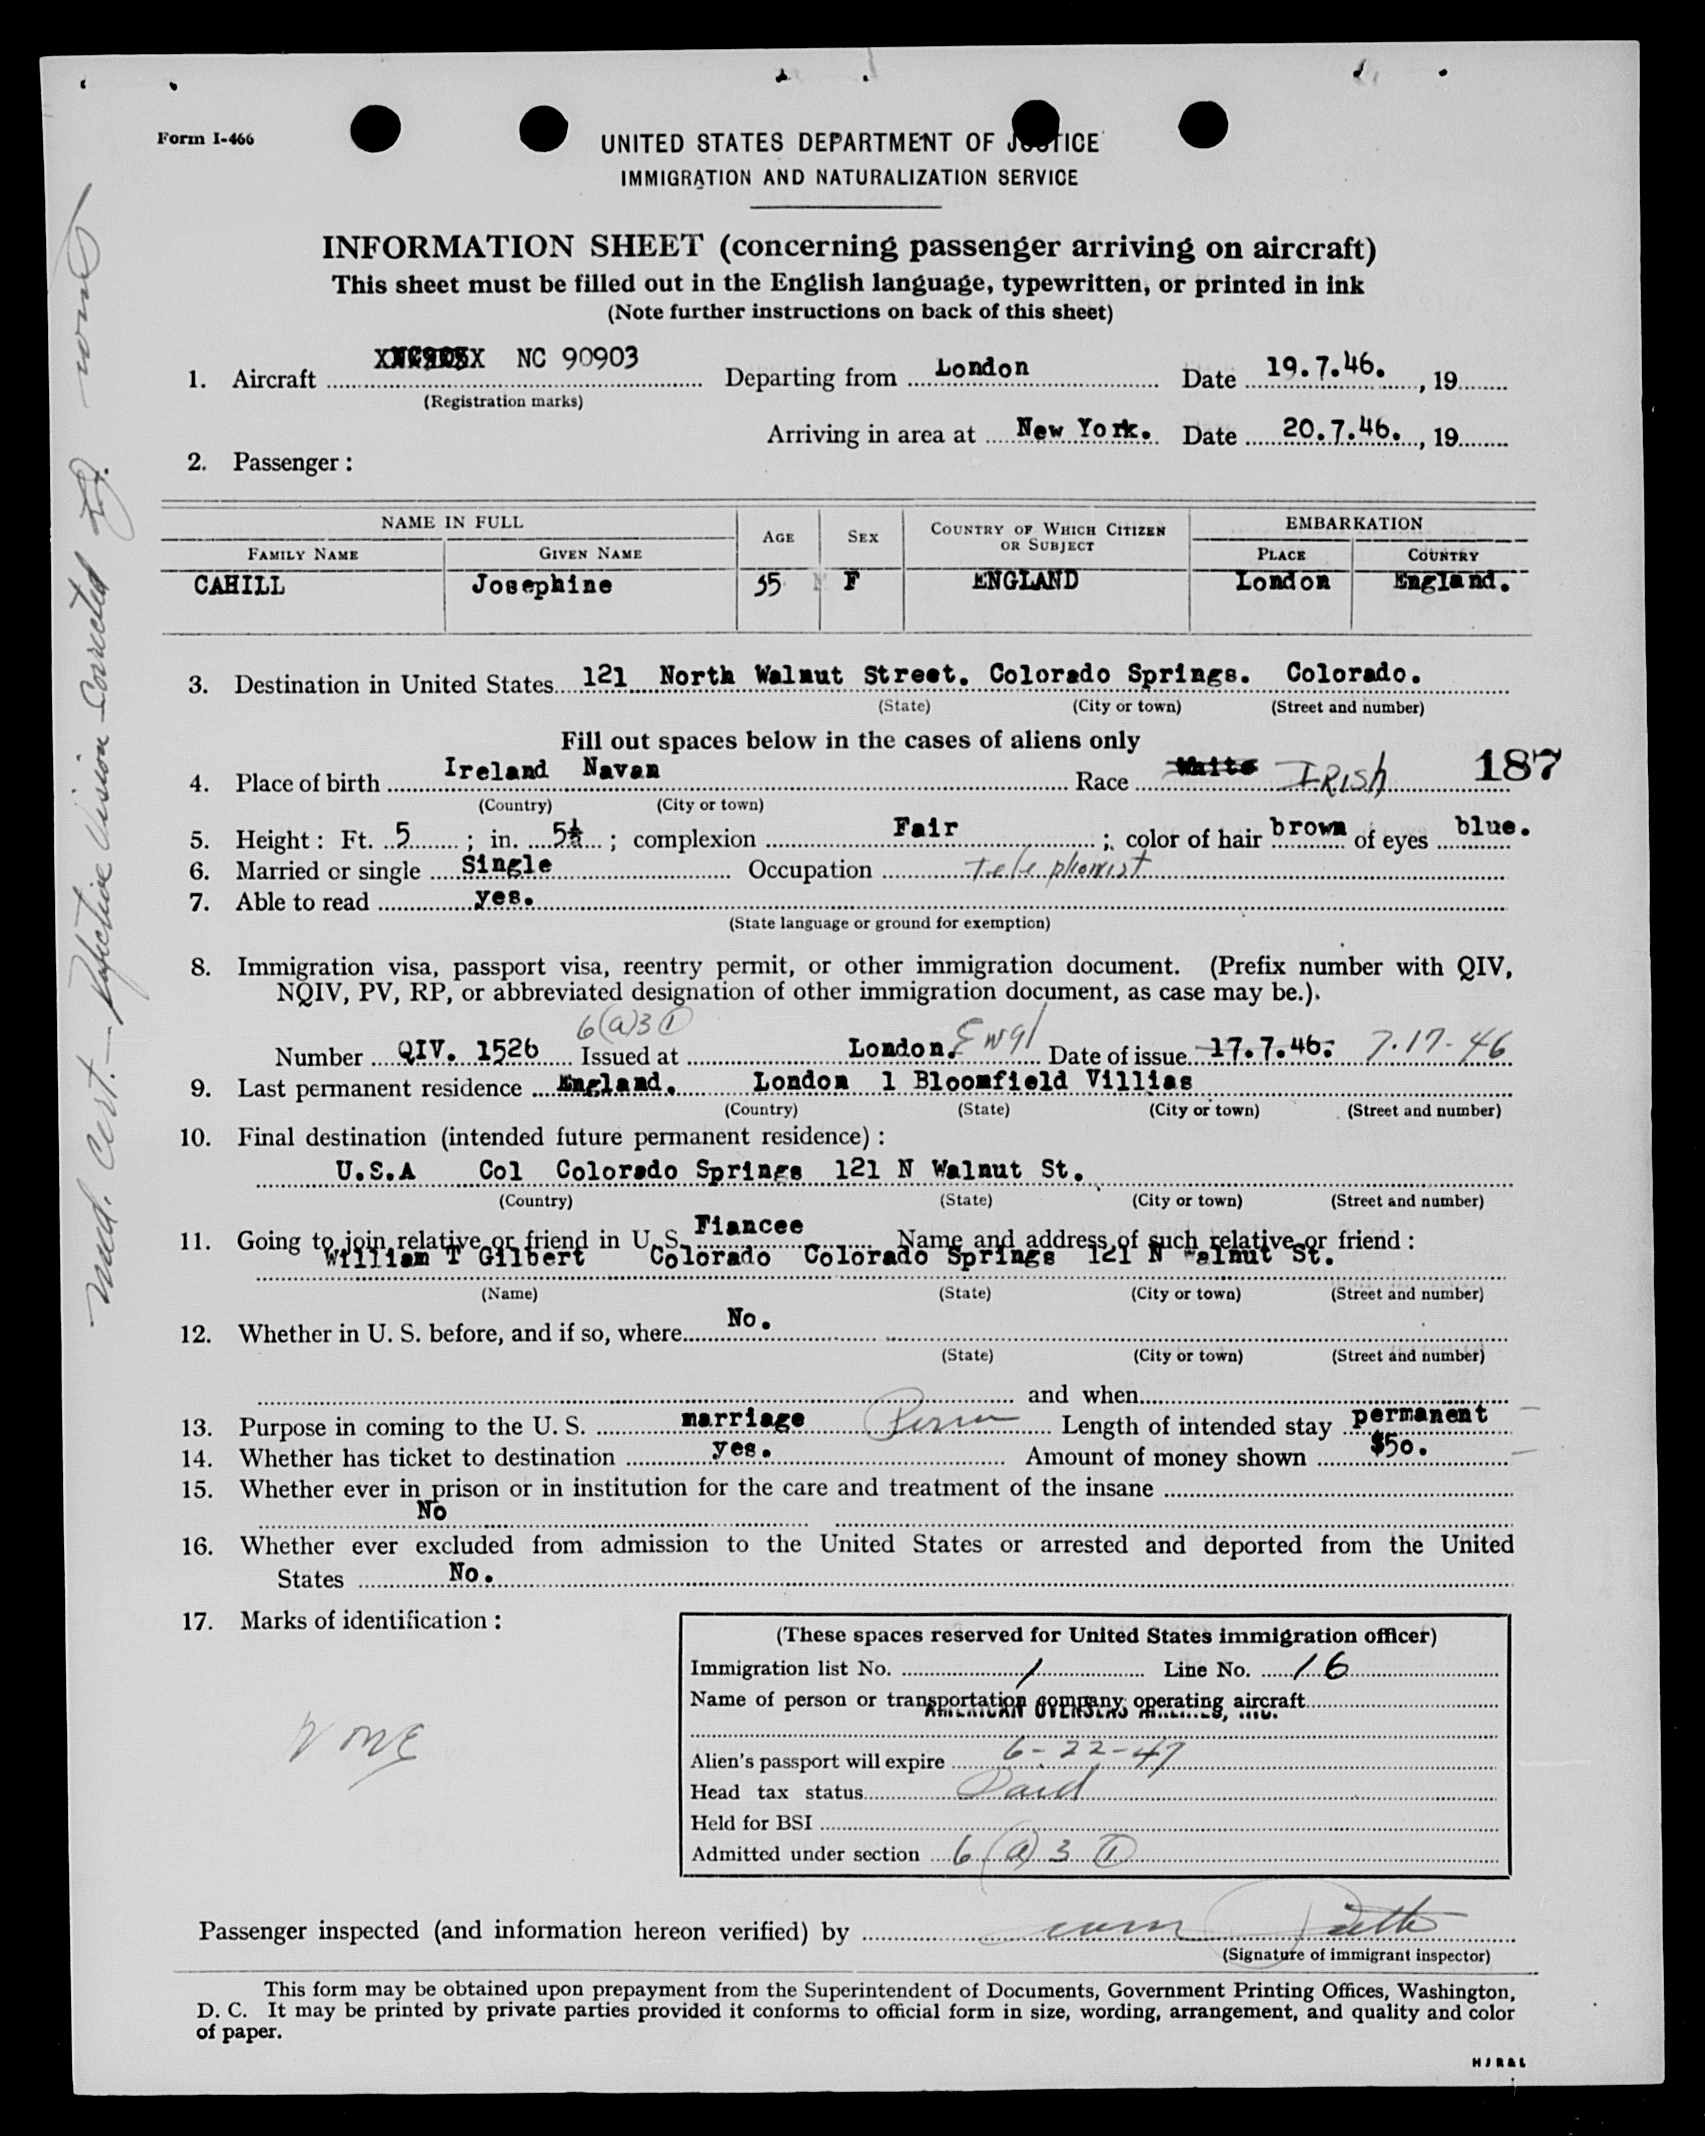 Form I-466
UNITED STATES DEPARTMENT OF JUSTICE
IMMIGRATION AND NATURALIZATION SERVICE
INFORMATION SHEET (concerning passenger arriving on aircraft)
This sheet must be filled out in the English language, typewritten, or printed in ink
(Note further instructions on back of this sheet)
1. Aircraft NC 90903 Departing from London Date 19.7.46. , 19
(Registration marks)
Arriving in area at New York. Date 20.7.46. , 19
2. Passenger :
NAME IN FULL AGE SEX COUNTRY OF WHICH CITIZEN OR SUBJECT EMBARKATION
FAMILY NAME GIVEN NAME PLACE COUNTRY
CAHILL Josephine 35 F ENGLAND London England.
3. Destination in United States 121 North Walnut Street. Colorado Springs. Colorado.
(State) (City or town) (Street and number)
Fill out spaces below in the cases of aliens only
187
4. Place of birth Ireland Navan Race White IRISH
(Country) (City or town)
5. Height : Ft. 5 ; in. 5½ ; complexion Fair ; color of hair brown of eyes blue.
6. Married or single Single Occupation Telephonist
7. Able to read yes.
(State language or ground for exemption)
8. Immigration visa, passport visa, reentry permit, or other immigration document. (Prefix number with QIV,
NQIV, PV, RP, or abbreviated designation of other immigration document, as case may be.).
6(a)3 ①
Number QIV. 1526 Issued at London. Engl Date of issue 17.7.46. 7-17-46
9. Last permanent residence England. London 1 Bloomfield Villias
(Country) (State) (City or town) (Street and number)
10. Final destination (intended future permanent residence) :
U.S.A Col Colorado Springs 121 N Walnut St.
(Country) (State) (City or town) (Street and number)
11. Going to join relative or friend in U. S. Fiancee Name and address of such relative or friend :
William T Gilbert Colorado Colorado Springs 121 N Walnut St.
(Name) (State) (City or town) (Street and number)
12. Whether in U. S. before, and if so, where No.
(State) (City or town) (Street and number)
and when
13. Purpose in coming to the U. S. marriage Perm Length of intended stay permanent
14. Whether has ticket to destination yes. Amount of money shown $50.
15. Whether ever in prison or in institution for the care and treatment of the insane
No
16. Whether ever excluded from admission to the United States or arrested and deported from the United
States No.
17. Marks of identification :
NONE
(These spaces reserved for United States immigration officer)
Immigration list No. 1 Line No. 16
Name of person or transportation company operating aircraft
AMERICAN OVERSEAS AIRLINES, INC.
Alien's passport will expire 6-22-47
Head tax status Paid
Held for BSI
Admitted under section 6(a)3 ①
Passenger inspected (and information hereon verified) by
(Signature of immigrant inspector)
This form may be obtained upon prepayment from the Superintendent of Documents, Government Printing Offices, Washington,
D. C. It may be printed by private parties provided it conforms to official form in size, wording, arrangement, and quality and color
of paper.
HJR&L
Med. Cert. — Defective Vision Corrected